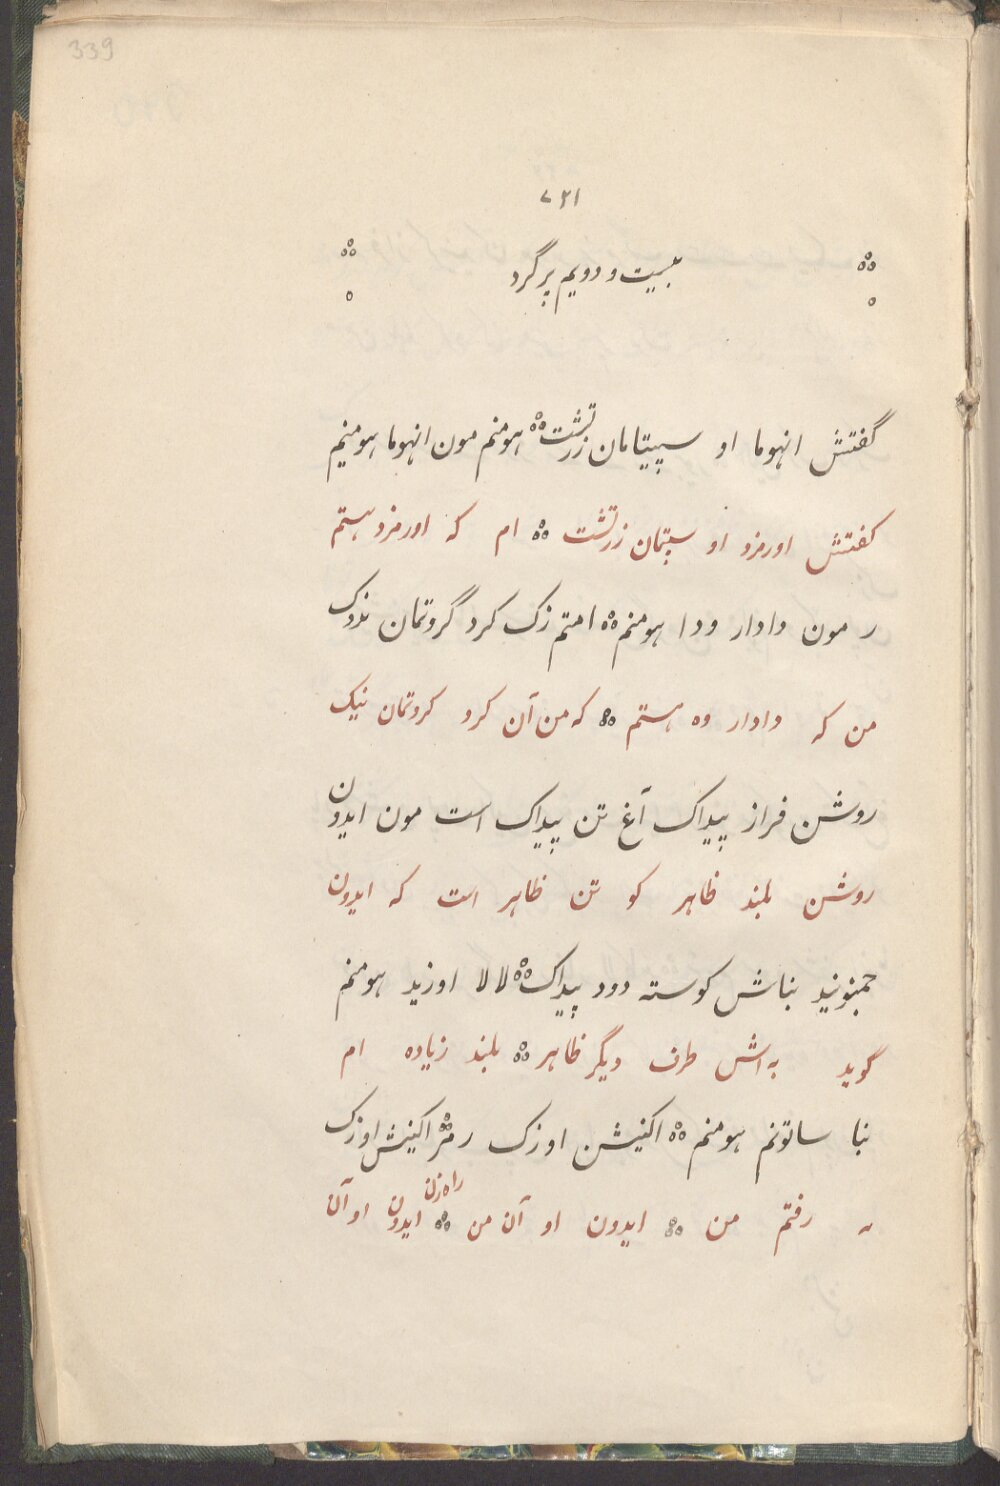 339
۷۲۱
بیست و دویم پرگرد
گفتش انهوما او سپیتامان زرتشت ஃ هومنم مون انهوما هومنیم
کفتش اورمزد او سپتمان زرتشت ஃ ام که اورمزد هستم
ر مون دادار ودا هومنم ஃ امتم زک کرد گروتمان ندوک
من که دادار وه هستم ஃ که من آن کرد کروتمان نیک
روشن فراز پیداک آغ تن پیداک است مون ایدون
روشن بلند ظاهر کو تن ظاهر است که ایدون
جمنونید بناش کوسته دود پیداک ஃ لالا اوزید هومنم
گوید به اش طرف دیگر ظاهر ஃ بلند زیاده ام
بنا ساتونم هومنم ஃ اکنیشن او زک ر مر ஃ اکنیش او زک
به رفتم من ஃ ایدون او آن من راه زن ஃ ایدون او آن